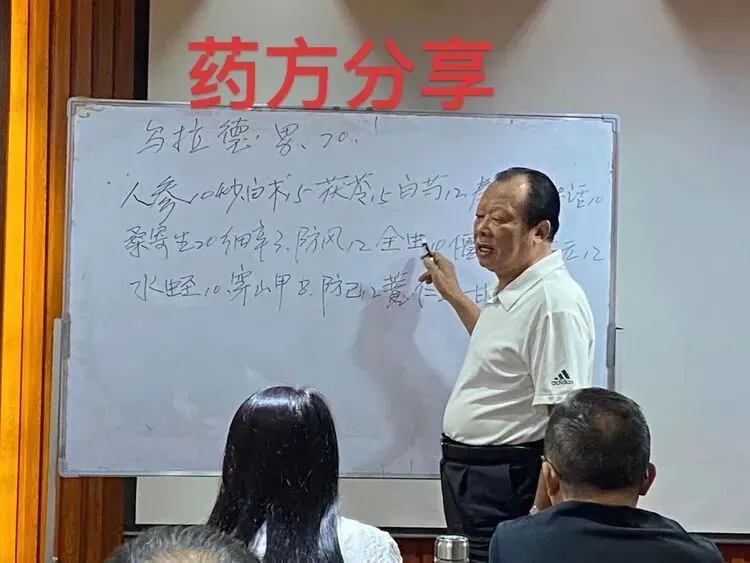 药方分享
乌拉德.男.70.
人参10炒白术15茯苓15白芍12 活10
桑寄生20细辛3.防风12.全虫10僵 12
水蛭10.穿山甲8.防己12薏仁 甘
adidas